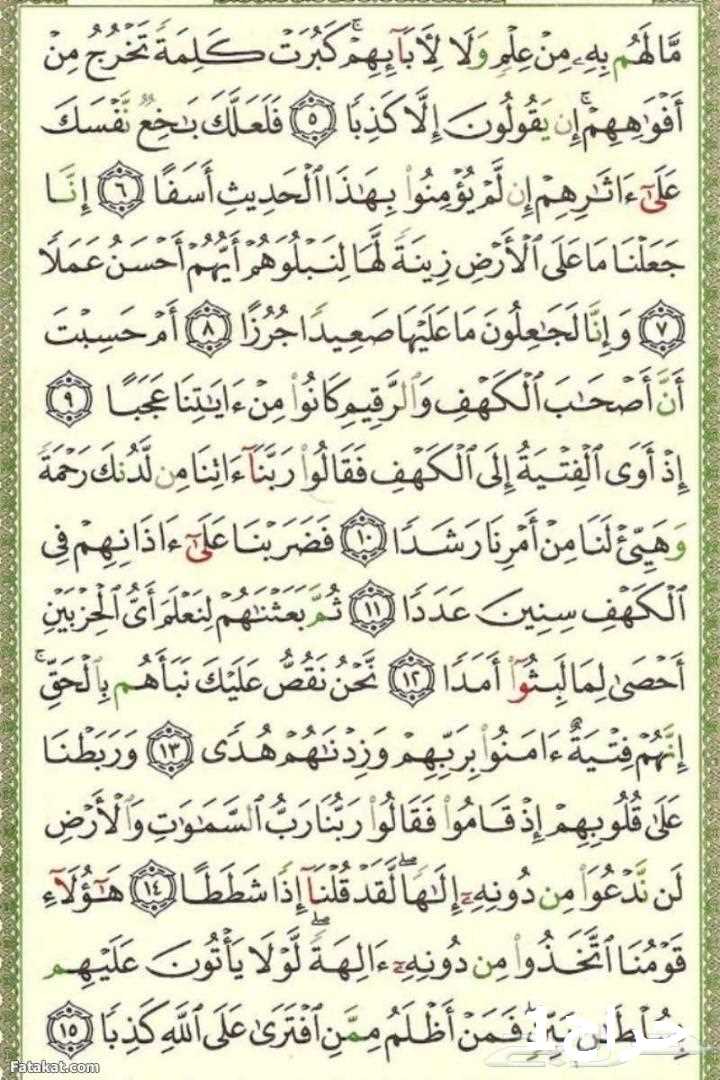 مَّا لَهُم بِهِۦ مِنْ عِلْمٍ وَلَا لِأَبَآئِهِمْ ۚ كَبُرَتْ كَلِمَةً تَخْرُجُ مِنْ
أَفْوَٰهِهِمْ ۚ إِن يَقُولُونَ إِلَّا كَذِبًا ٥ فَلَعَلَّكَ بَٰخِعٌ نَّفْسَكَ
عَلَىٰٓ ءَاثَٰرِهِمْ إِن لَّمْ يُؤْمِنُوا۟ بِهَٰذَا ٱلْحَدِيثِ أَسَفًا ٦ إِنَّا
جَعَلْنَا مَا عَلَى ٱلْأَرْضِ زِينَةً لَّهَا لِنَبْلُوَهُمْ أَيُّهُمْ أَحْسَنُ عَمَلًا
٧ وَإِنَّا لَجَٰعِلُونَ مَا عَلَيْهَا صَعِيدًا جُرُزًا ٨ أَمْ حَسِبْتَ
أَنَّ أَصْحَٰبَ ٱلْكَهْفِ وَٱلرَّقِيمِ كَانُوا۟ مِنْ ءَايَٰتِنَا عَجَبًا ٩
إِذْ أَوَى ٱلْفِتْيَةُ إِلَى ٱلْكَهْفِ فَقَالُوا۟ رَبَّنَآ ءَاتِنَا مِن لَّدُنكَ رَحْمَةً
وَهَيِّئْ لَنَا مِنْ أَمْرِنَا رَشَدًا ١٠ فَضَرَبْنَا عَلَىٰٓ ءَاذَانِهِمْ فِى
ٱلْكَهْفِ سِنِينَ عَدَدًا ١١ ثُمَّ بَعَثْنَٰهُمْ لِنَعْلَمَ أَىُّ ٱلْحِزْبَيْنِ
أَحْصَىٰ لِمَا لَبِثُوٓا۟ أَمَدًا ١٢ نَّحْنُ نَقُصُّ عَلَيْكَ نَبَأَهُم بِٱلْحَقِّ ۚ
إِنَّهُمْ فِتْيَةٌ ءَامَنُوا۟ بِرَبِّهِمْ وَزِدْنَٰهُمْ هُدًى ١٣ وَرَبَطْنَا
عَلَىٰ قُلُوبِهِمْ إِذْ قَامُوا۟ فَقَالُوا۟ رَبُّنَا رَبُّ ٱلسَّمَٰوَٰتِ وَٱلْأَرْضِ
لَن نَّدْعُوَا۟ مِن دُونِهِۦٓ إِلَٰهًا ۖ لَّقَدْ قُلْنَآ إِذًا شَطَطًا ١٤ هَٰٓؤُلَآءِ
قَوْمُنَا ٱتَّخَذُوا۟ مِن دُونِهِۦٓ ءَالِهَةً ۖ لَّوْلَا يَأْتُونَ عَلَيْهِم
بِسُلْطَٰنٍۭ بَيِّنٍ ۖ فَمَنْ أَظْلَمُ مِمَّنِ ٱفْتَرَىٰ عَلَى ٱللَّهِ كَذِبًا ١٥
حراج
Fatakat.com